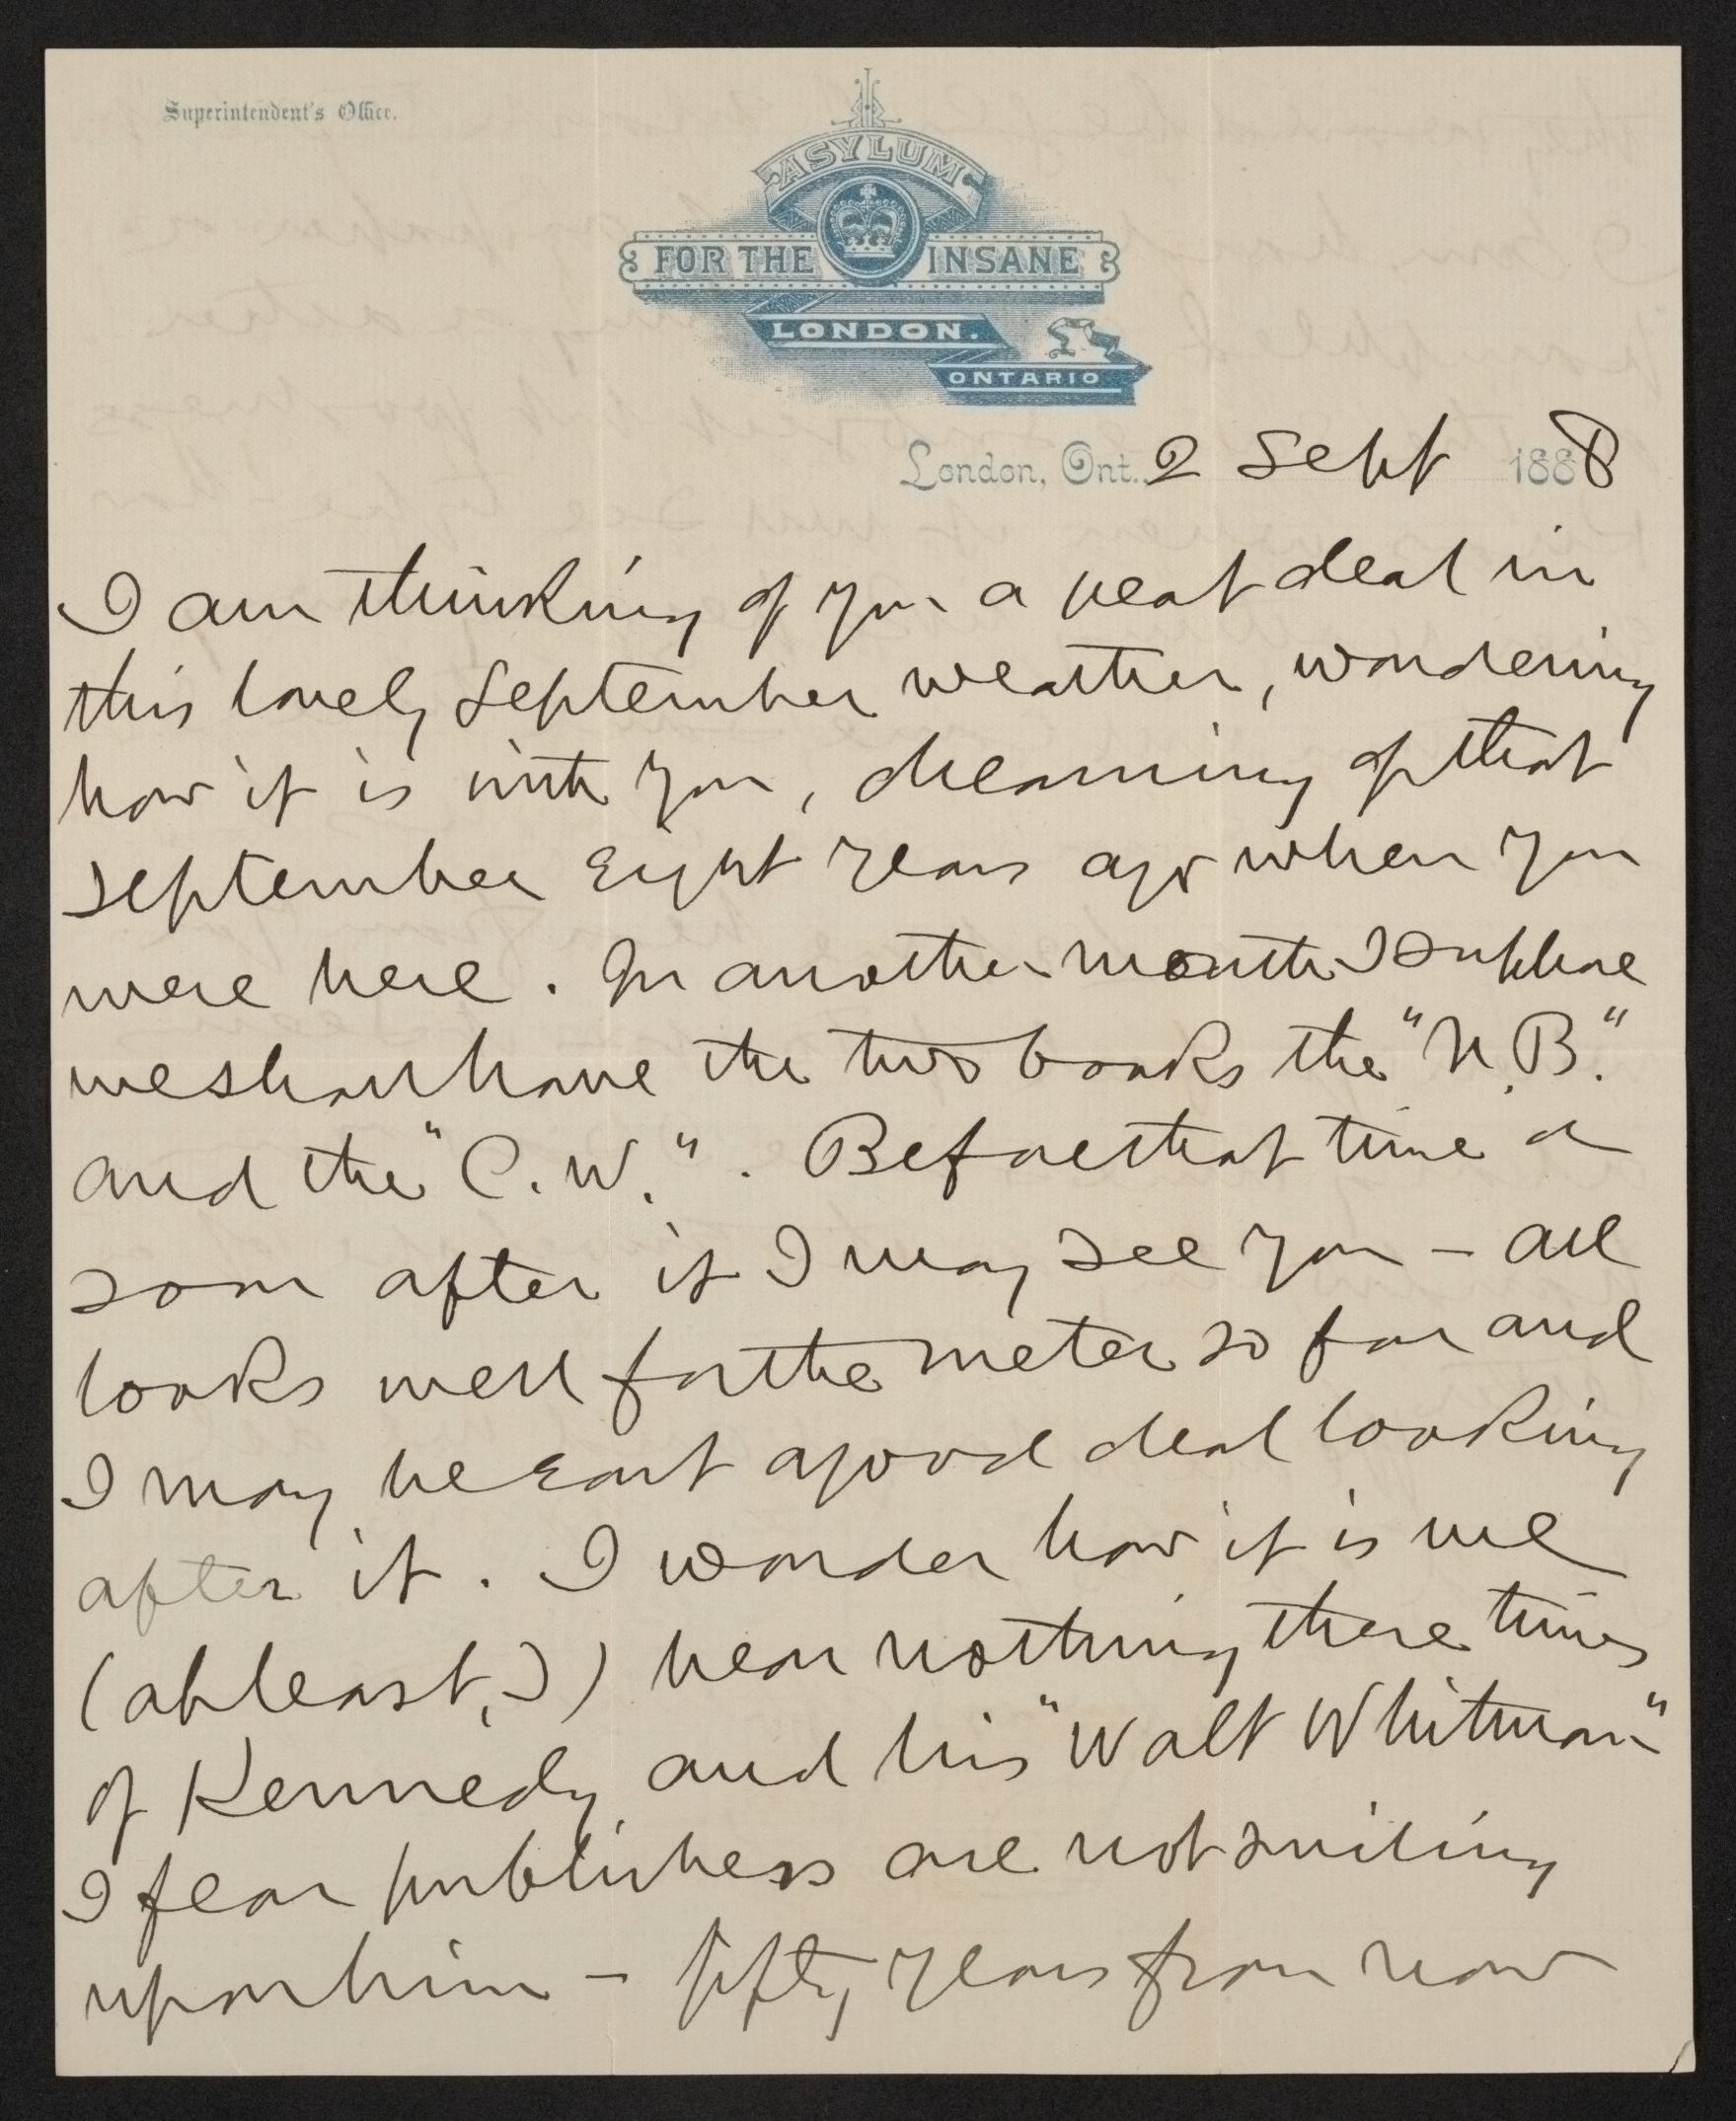 Superintendent's Office.
ASYLUM
FOR THE INSANE
LONDON.
ONTARIO
London, Ont. 2 Sept 1888
I am thinking of you a great deal in
this lovely September weather, wondering
how it is with you, dreaming of that
September eight years ago when you
were here. In another month I suppose
we shall have the two books the "N.B."
and the "C.W.". Before that time or
soon after it I may see you — all
looks well for the meter so far and
I may be East a good deal looking
after it. I wonder how it is we
(at least, I) hear nothing these times
of Kennedy and his "Walt Whitman"
I fear publishers are not smiling
upon him — fifty years from now